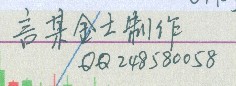 言某金士制作
QQ 248580058